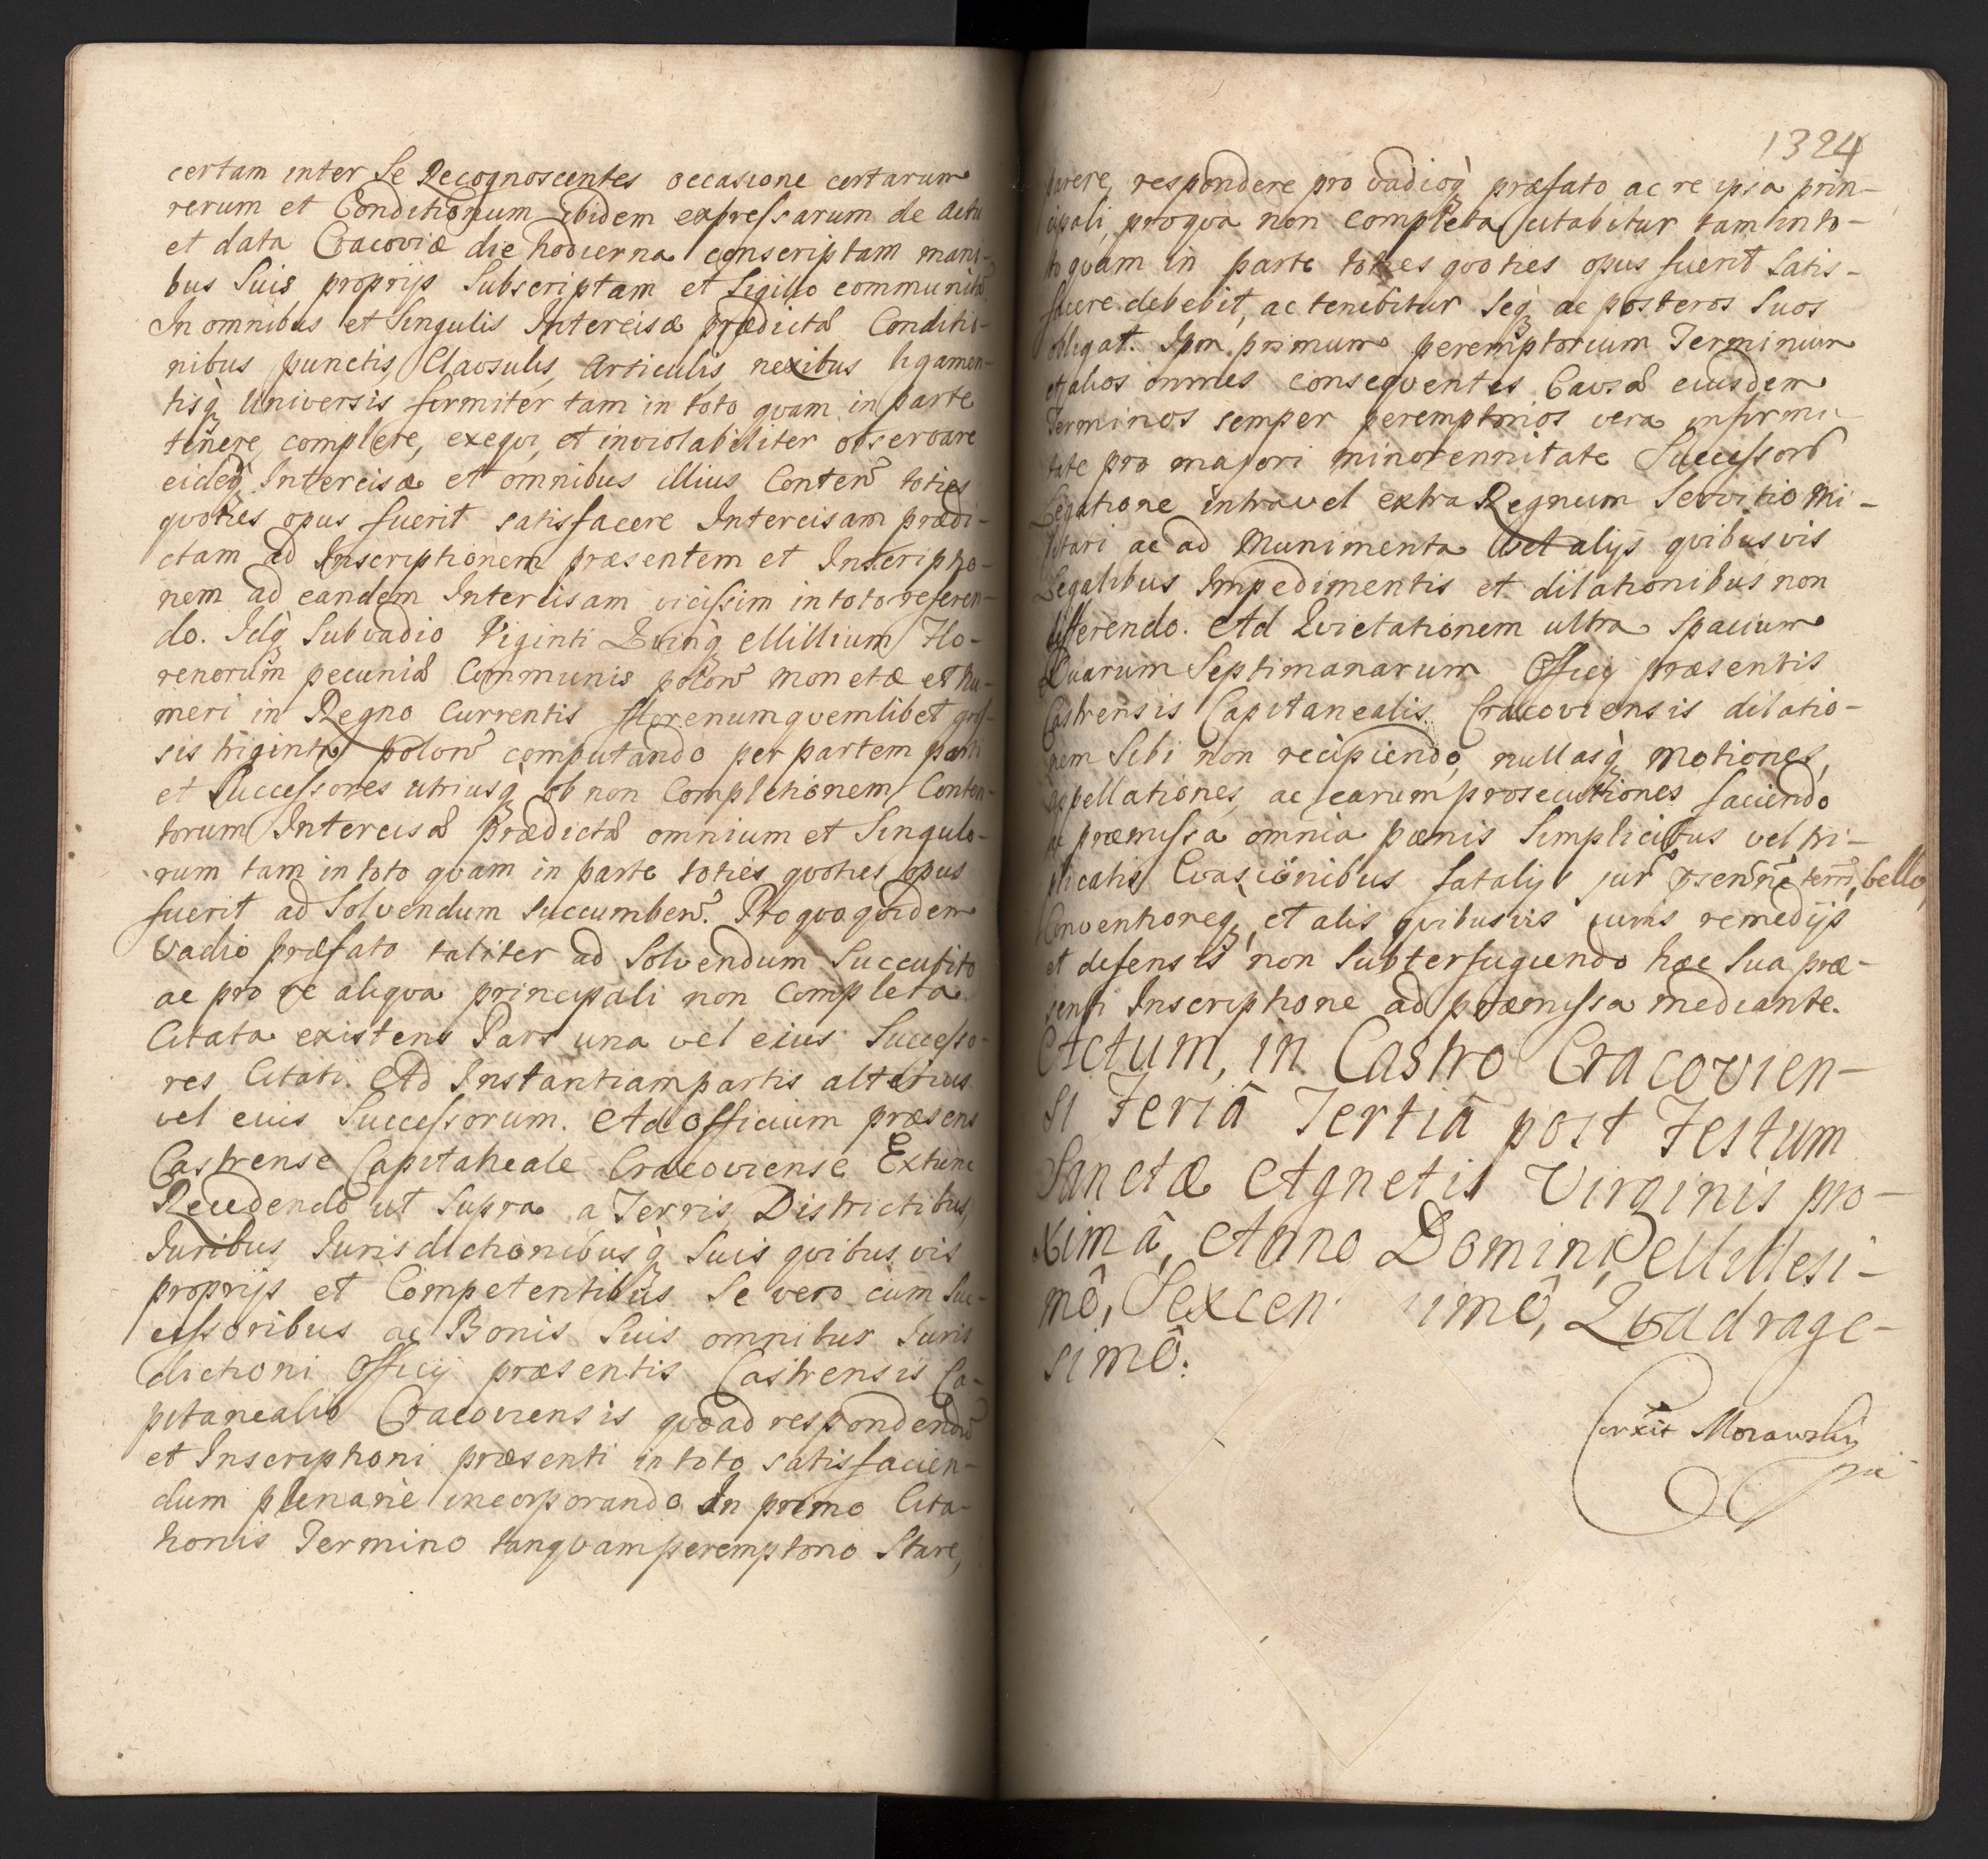 certam inter Se Recognoscentes occasione certarum
rerum et Conditionum ibidem expressarum de Actu
et data Cracoviæ die hodierna conscriptam mani-
bus Suis proprijs Subscriptam et Sigillo
In omnibus et Singulis Intercisæ prædictæ Conditio-
nibus punctis, Clausulis, Articulis, nexibus ligamen-
tisq̀ Universis firmiter tam in toto qvam in parte
tenere, complere, exeqvi, et inviolabiliter observare
eideq̀ Intercisæ et omnibus illius Conten̄ toties
qvoties opus fuerit satisfacere Intercisam prædi-
ctam ad Inscriptionem præsentem et Inscriptio-
nem ad eandem Intercisam vicissim in toto referen-
do. Idq̀ Sub vadio Viginti Qvinq̀ Millium Flo-
renorum pecuniæ Communis polon̄ monetæ et Nu-
meri in Regno Currentis florenum qvemlibet gros-
sis triginta polon̄ computando per partem parti
et Successores utriusq̀ ob non Completionem Conten-
torum Intercisæ prædictæ omnium et Singulo-
rum tam in toto qvam in parte toties qvoties opus
fuerit ad Solvendum succumben̄. Pro qvo qvidem
Vadio præfato taliter ad Solvendum Succubito
ac pro re aliqva principali non Completa
Citata existens Pars una vel eius Successo-
res Citati. Ad Instantiam partis alterius
vel euis Successorum. Ad Officium præsens
Castrense Capitaneale Cracoviense Extunc
Recedendo ut Supra a Terris, Districtibus,
Iuribus, Iurisdictionibusq̀ Suis qvibusvis
proprijs et Competentibus Se vero cum Suc-
cessoribus ac Bonis Suis omnibus Juris
dictioni Officij præsentis Castrensis Ca-
pitanealis Cracoviensis qvoad respondendū
et Inscriptioni præsenti in toto satisfacien-
dum plenarie incorporando In primo Cita-
tionis Termino tanqvam peremptorio Stare,
1324
parere, respondere pro vadioq̀ præfato ac re ipsa prin-
cipali, pro qva non completa citabitur tam in to-
to qvam in parte toties qvoties opus fuerit Satis-
facere debebit, ac tenebitur Seq̀ ac posteros Suos
obligat. Ipm̄ primum peremptorium Terminum
et alios omnes conseqventes Causæ eiusdem
Terminos semper peremptorios vera infirmi
tate pro majori minorennitate Successorū
Legatione intra vel extra Regnum Servitio Mi-
litari ac ad Munimenta Vel alijs qvibusvis
Legalibus Impedimentis et dilationibus non
differendo. Ad Qvietationem ultra Spacium
Duarum Septimanarum Officij præsentis
Castrensis Capitanealis Cracoviensis dilatio-
nem Sibi non recipiendo, nullasq̀ motiones,
appellationes, ac earum prosecutiones faciendo
ac præmissa omnia pœnis Simplicibus vel tri-
plicatis Evasionibus fatalijs jur̄ terr̄, bello,
Conventioneq̀, et alis qvibusvis iuris remedijs
et defensis non Subterfugiendo hac Sua præ-
senti Inscriptione ad præmissa mediante.
Actum, in Castro Cracovien-
si Feriâ Tertiâ post Festum
Sanctæ Agnetis Virginis pro-
ximâ, Anno Domini, Millesi-
mô, Sexcen imô, Qvadrage-
simô.
Corxit Morawsky